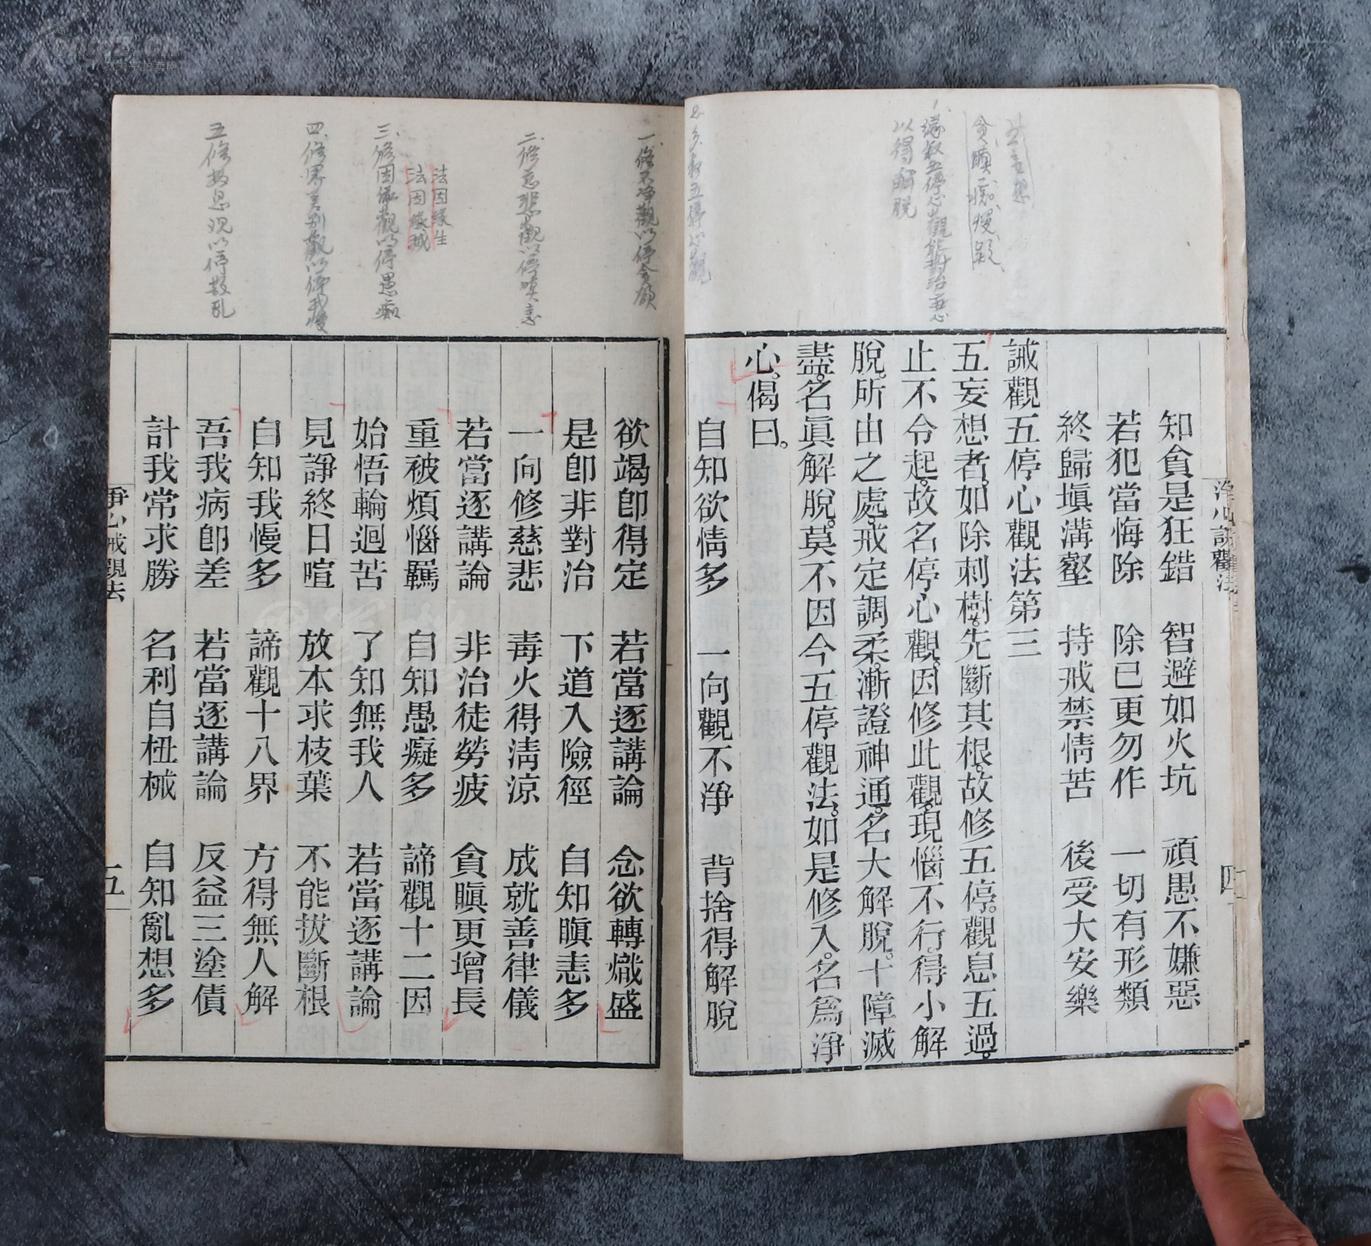 知貪是狂錯　智避如火坑　頑愚不嫌惡
若犯當悔除　除已更勿作　一切有形類
終歸塡溝壑　持戒禁情苦　後受大安樂
誡觀五停心觀法第三
五妄想者。如除刺樹。先斷其根。故修五停。觀息五過。
止不令起。故名停心觀。因修此觀。現惱不行。得小解
脫。所由之處。戒定調柔。漸證神通。名大解脫。十障滅
盡。名眞解脫。莫不因今五停觀法。如是修入。名爲淨
心。偈曰。
自知欲情多　一向觀不淨　背捨得解脫
欲竭卽得定　若當逐講論　念欲轉熾盛
是卽非對治　下道入險徑　自知瞋恚多
一向修慈悲　毒火得淸涼　成就善律儀
若當逐講論　非治徒勞疲　貪瞋更增長
重被煩惱羈　自知愚癡多　諦觀十二因
始悟輪迴苦　了知無我人　若當逐講論
見諍終日喧　放本求枝葉　不能拔斷根
自知我慢多　諦觀十八界　方得無人解
吾我病卽差　若當逐講論　反益三塗債
計我常求勝　名利自杻械　自知亂想多
淨心誡觀法
四
淨心誡觀法
五
貪瞋痴慢疑
以得解脫
一修不淨觀以停貪欲
二修慈悲觀以停嗔恚
法因緣生
法因緣滅
三修因緣觀以停愚痴
四修界差別觀以停我慢
五修數息觀以停散乱